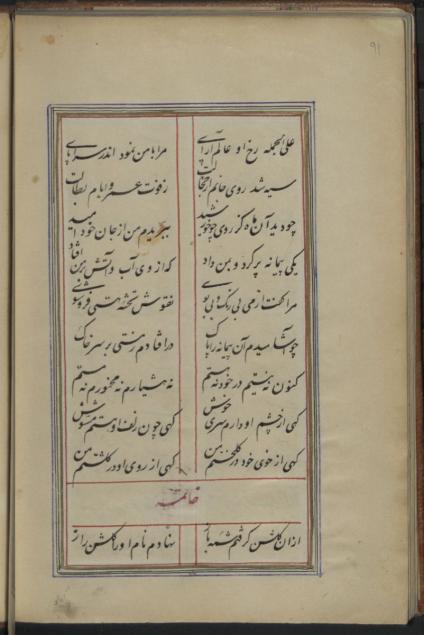 ۹۱
علی الجمله رخ او عالم آرای
مرا با من نمود اندر سراپای
سیه شد روی جانم از خجالت
ز فوت عمر و ایام بطالت
چو دید آن ماه کز روی چو خورشید
ببریدم من از جان خود امید
یکی پیمانه پر کرد و بمن داد
که از وی آب و آتش در من افتاد
مرا گفت از می بی رنگ و بی بوی
نقوش تخته هستی فروشوی
چو آشامیدم آن پیمانه را پاک
در افتادم ز مستی بر سر خاک
کنون نه نیستم در خود نه هستم
نه هشیارم نه مخمورم نه مستم
گهی از چشم او دارم سری خوش
گهی چون زلف او هستم مشوش
گهی از خوی خود در گلخنم من
گهی از روی او در گلشنم من
خاتمه
از آن گلشن گرفتم شمه باز
نهادم نام او را گلشن راز